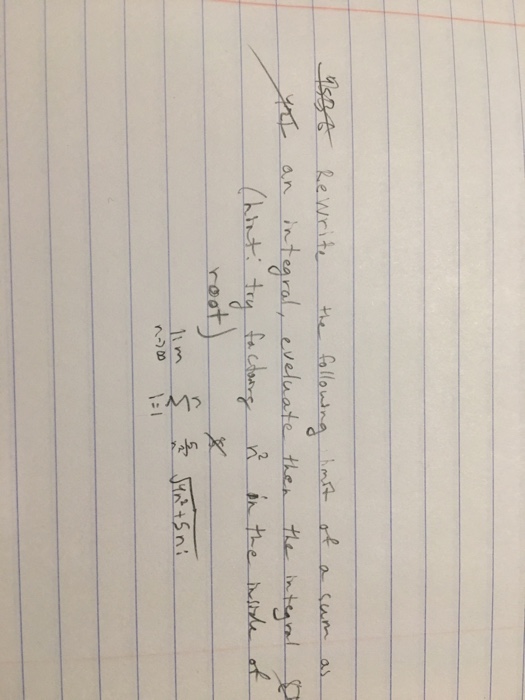 Rewrite the following limit of a sum as
an integral, eveluate then the integral
(hint: try factoring n² in the inside of
root)
lim n→∞ n Σ i=1 5/n² √4n²+5ni